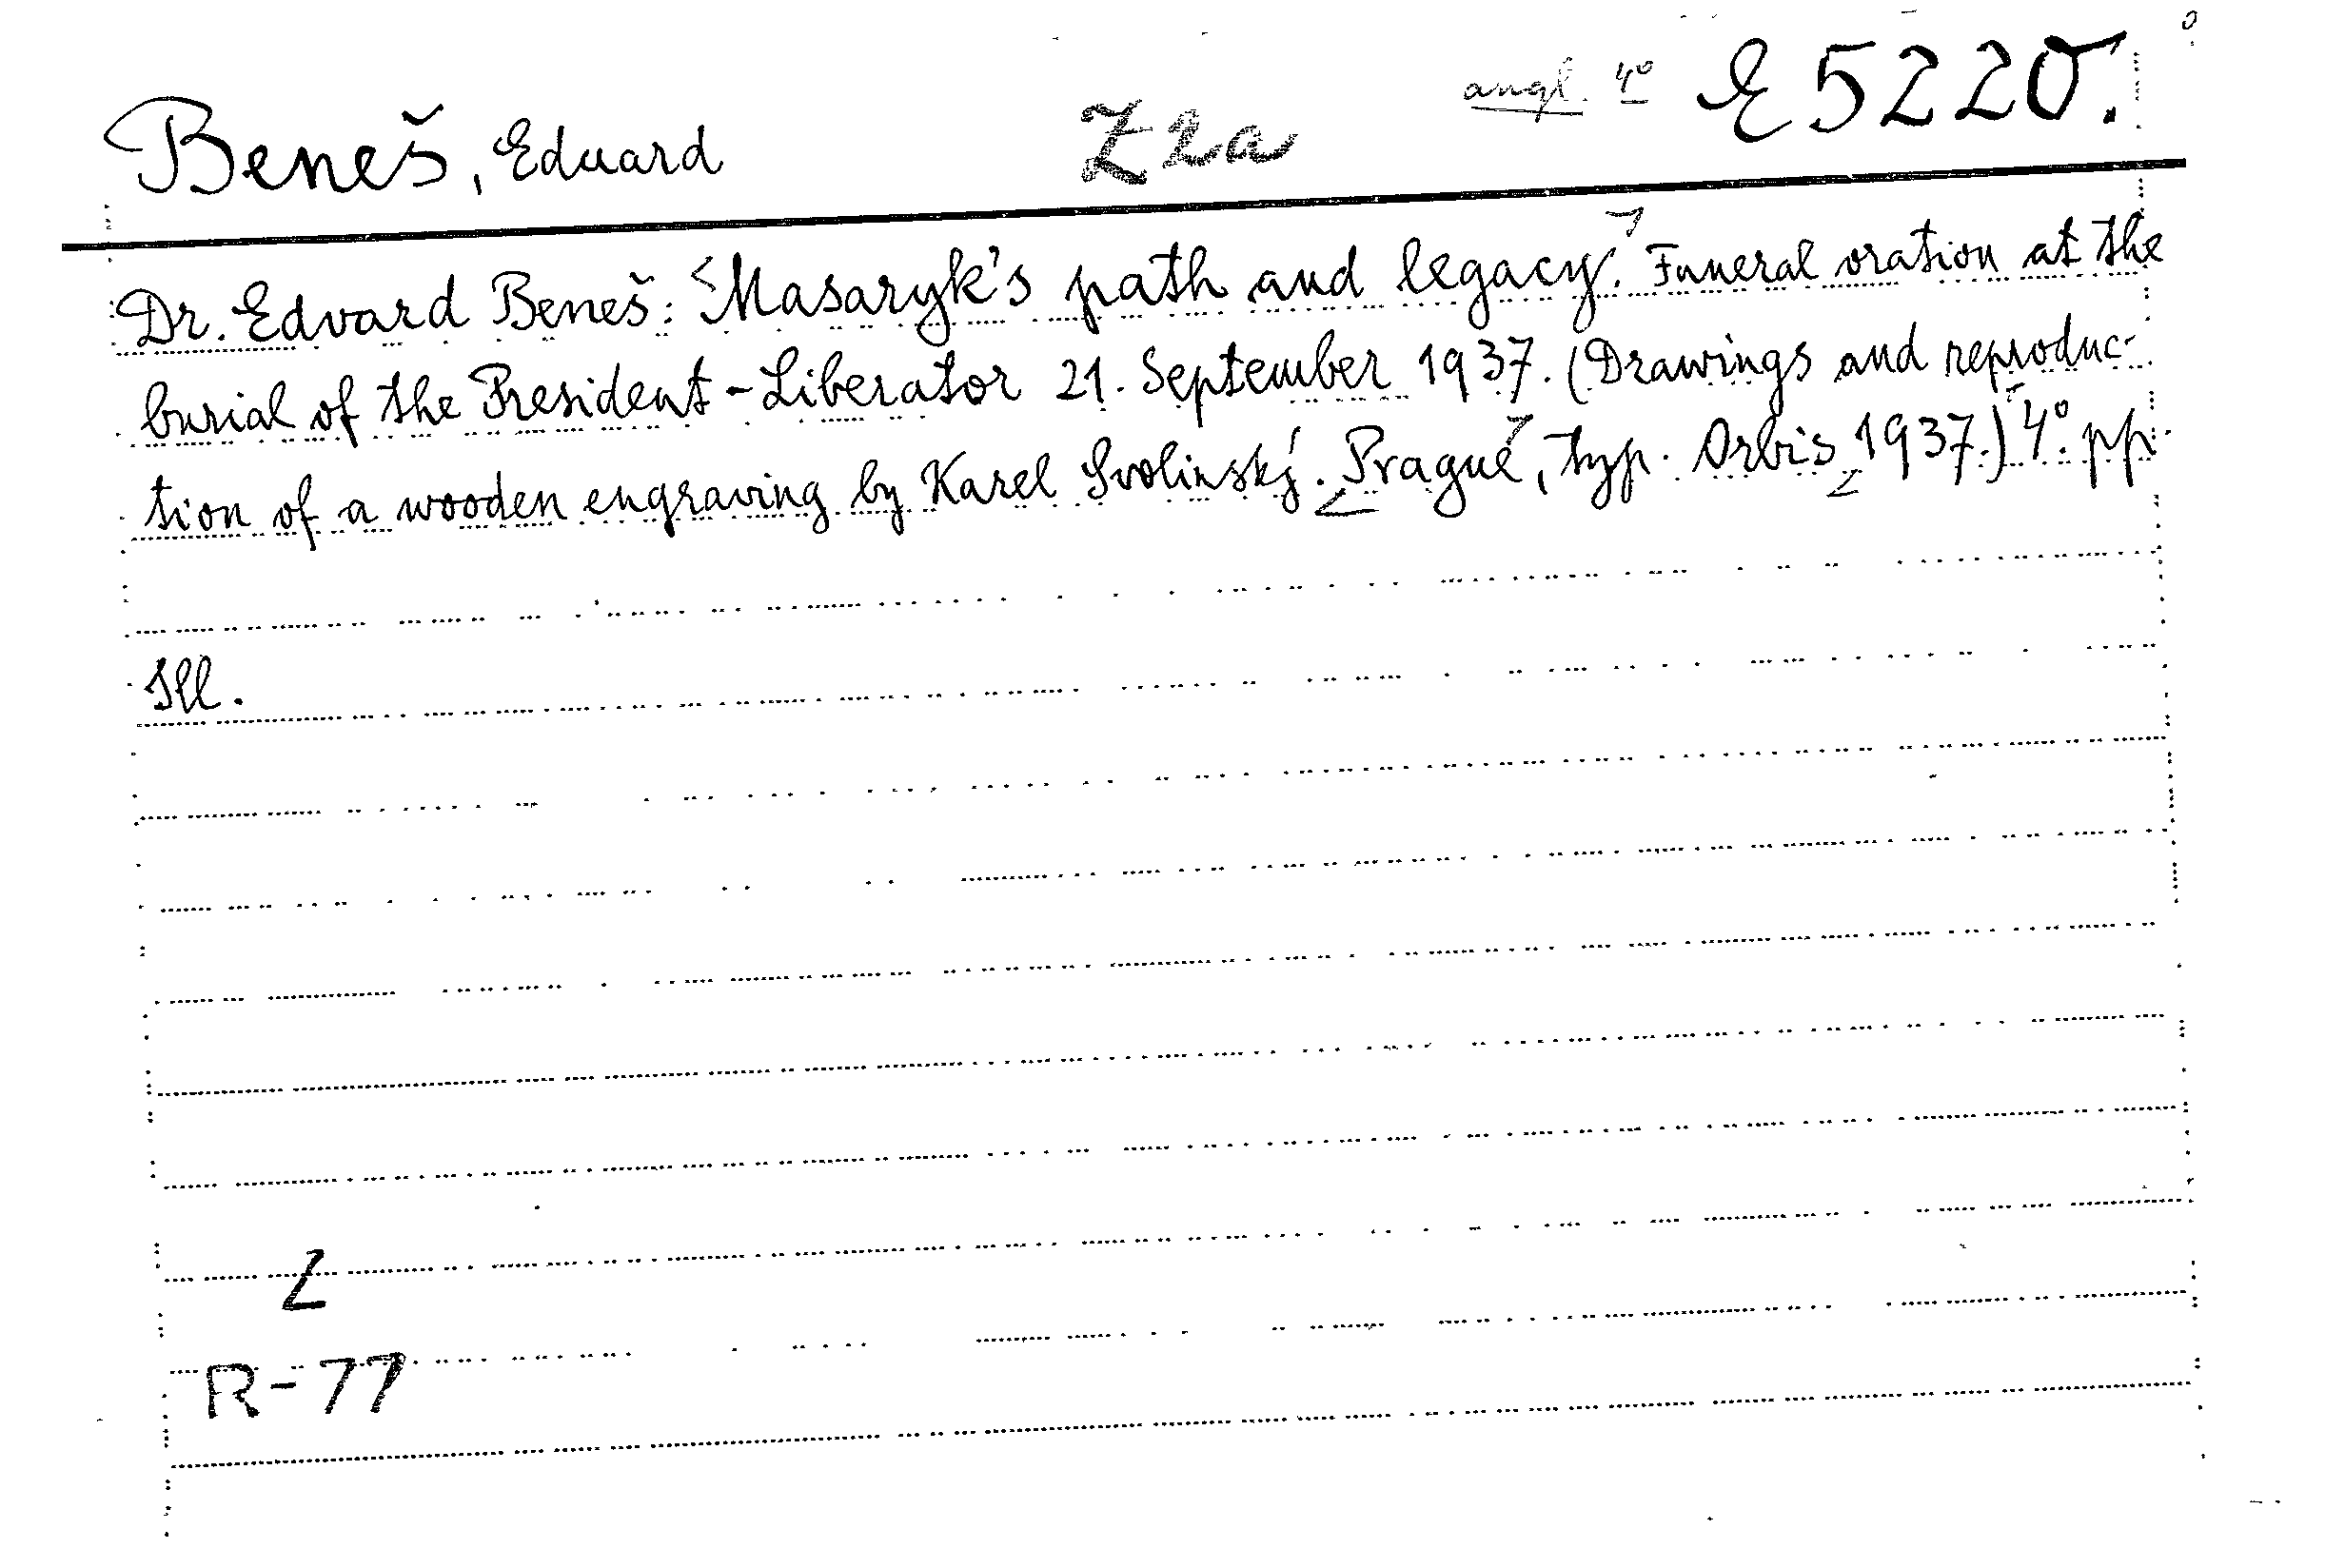 Beneš, Eduard Z2a angl. 4° E 5220.
Dr. Edvard Beneš: Masaryk's path and legacy. Funeral oration at the
burial of the President-Liberator 21. September 1937. (Drawings and reproduc-
tion of a wooden engraving by Karel Svolinský. Prague, typ. Orbis 1937.) 4°. pp.
Ill.
Z
R-77